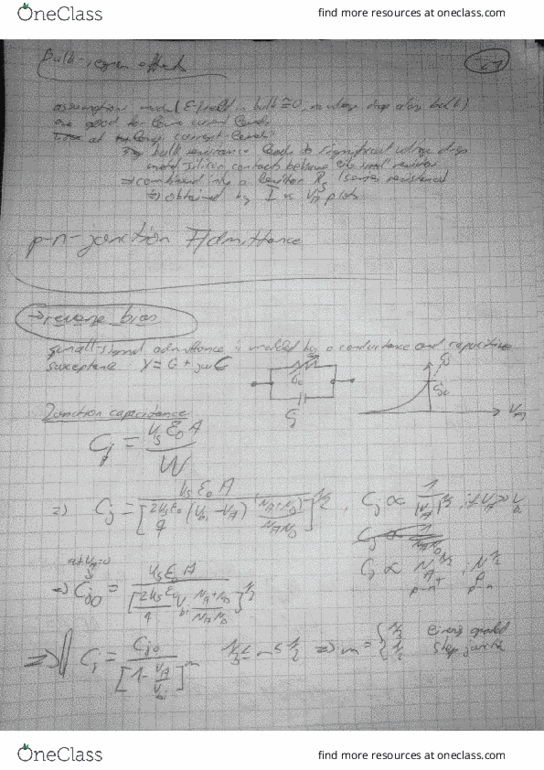 OneClass find more resources at oneclass.com
Bulk-region effects
assumption made (E-field in bulk ≅ 0, no voltage drop along bulk)
are good for low current levels
at current levels
bulk resistance leads to significant voltage drop
metal silicon contacts become small resistor
⇒ combined into a resistor Rs (series resistance)
⇒ obtained by I vs VA plots
p-n-junction Admittance
→ reverse bias
small-signal admittance is modeled by a conductance and capacitive
susceptance Y = G + jωC
G0
Cj
Cj
Cj0
VA
Junction capacitance
Cj = Ks ε0 A / W
⇒ Cj = Ks ε0 A / [2Ks ε0 / q (Vbi - VA) (NA + ND) / NA ND]^1/2 , Cj ∝ 1 / |VA|^1/2 , if VA >> Vbi
Cj ∝ NA^1/2 , ND^1/2
p-n+ p+-n
at VA=0
⇒ Cj0 = Ks ε0 A / [2Ks ε0 / q Vbi (NA + ND) / NA ND]^1/2
⇒ Cj = Cj0 / [1 - VA / Vbi]^m 1/3 ≤ m ≤ 1/2 ⇒ m = { 1/3 linearly graded
1/2 step junction
OneClass find more resources at oneclass.com